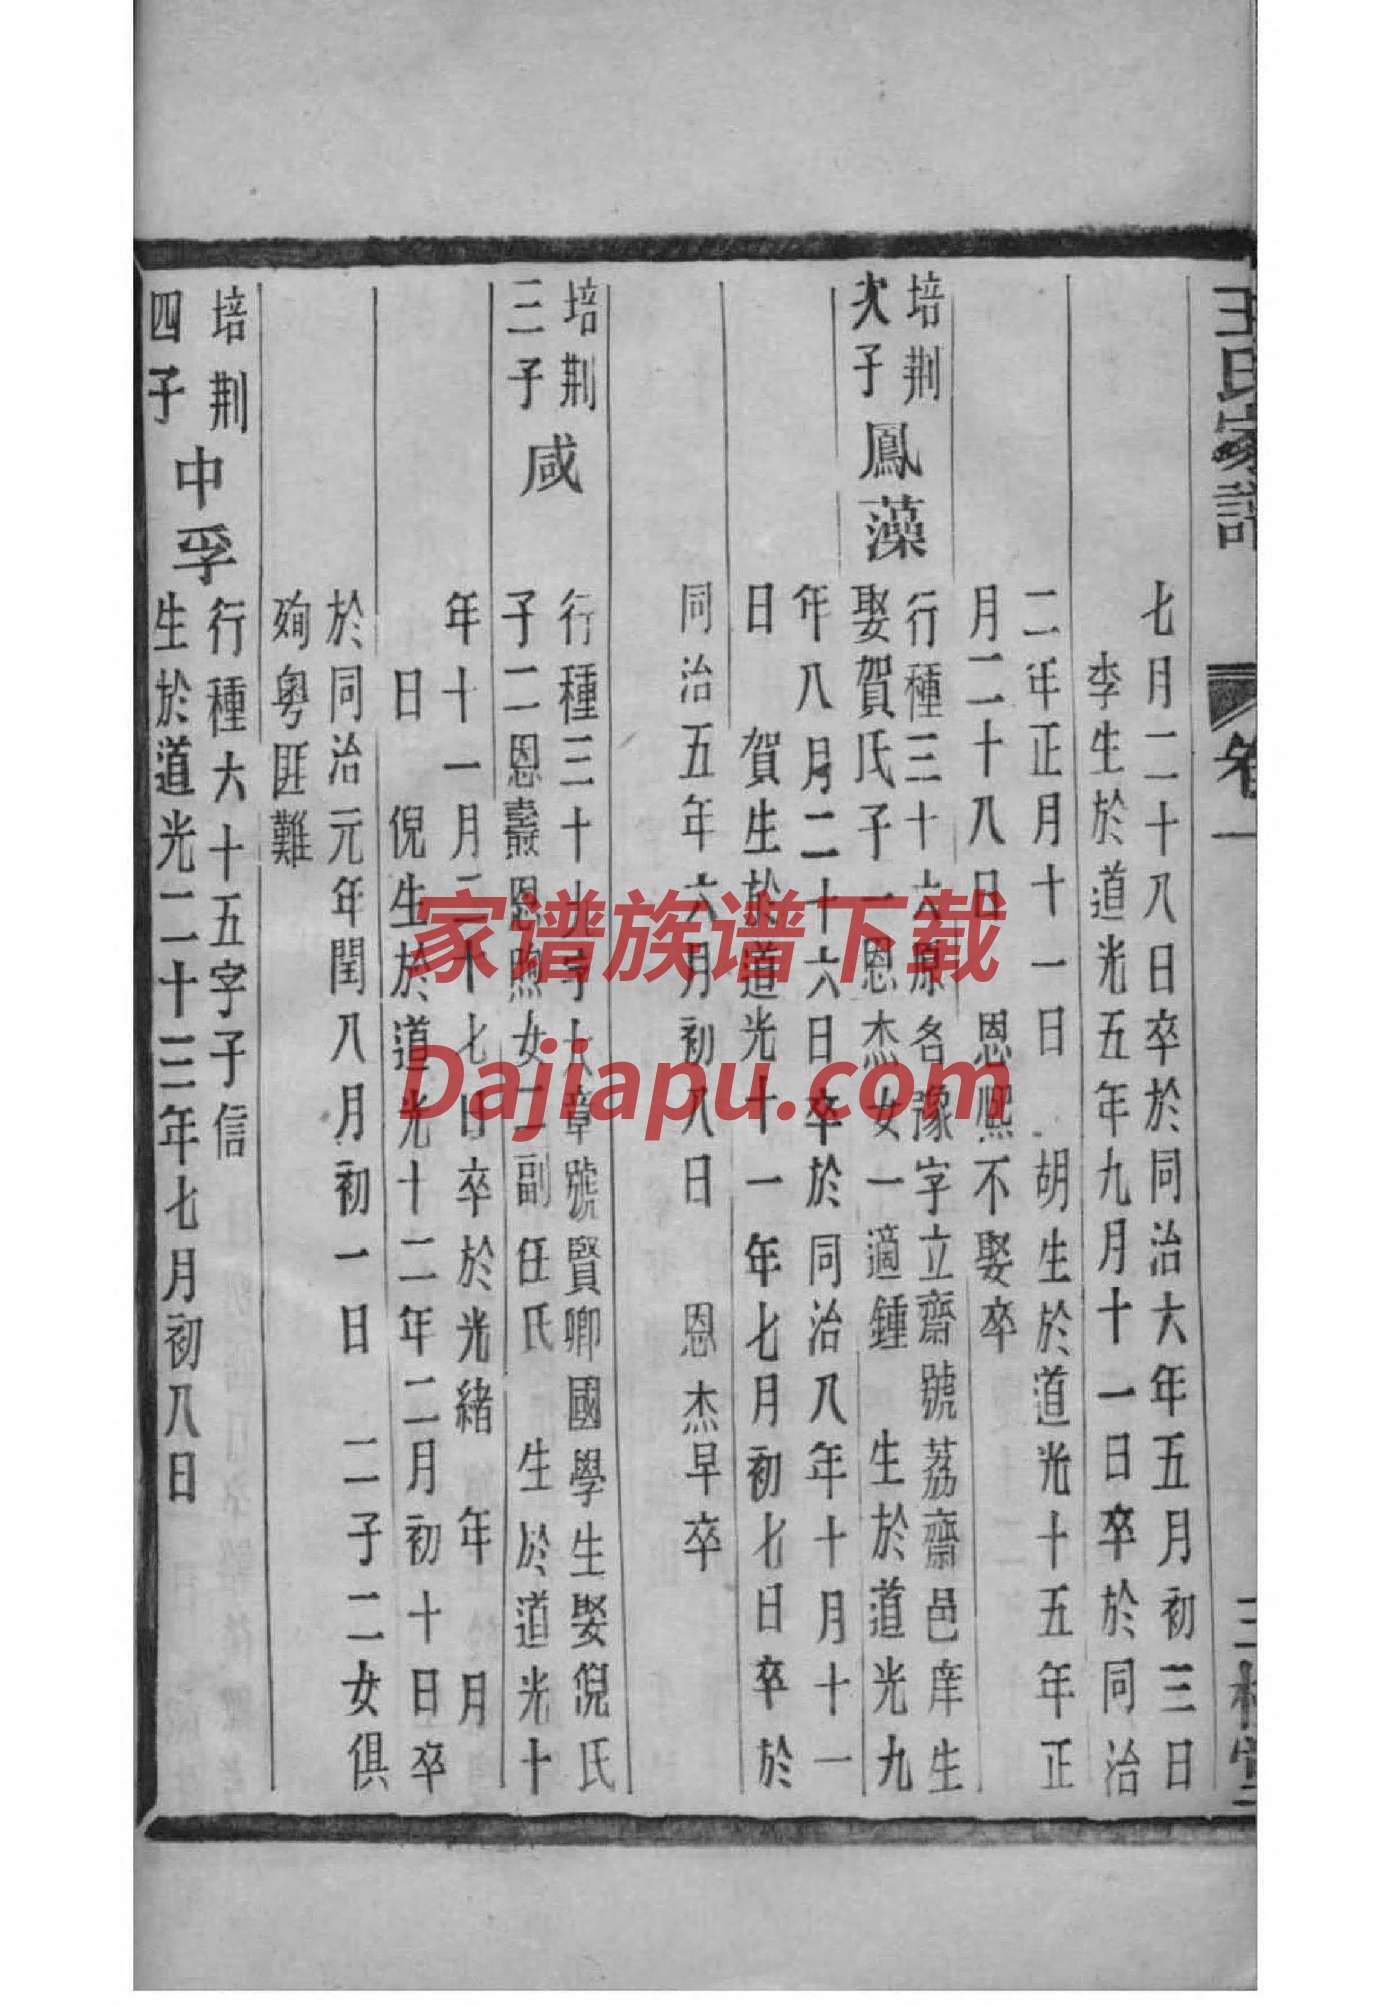 王氏家譜
卷一
三槐堂
七月二十八日卒於同治六年五月初三日
李生於道光五年九月十一日卒於同治
二年正月十一日 胡生於道光十五年正
月二十八日 恩熙不娶卒
培荆次子 鳳藻 行種三十六原名豫字立齋號荔齋邑庠生
娶賀氏子一恩杰女一適鍾 生於道光九
年八月二十六日卒於同治八年十月十一
日 賀生於道光十一年七月初七日卒於
同治五年六月初八日 恩杰早卒
培荆三子 咸 行種三十九字大章號賢卿國學生娶倪氏
子二恩壽恩煦女二副任氏 生於道光十
年十一月二十七日卒於光緒 年 月
日 倪生於道光十二年二月初十日卒
於同治元年閏八月初一日 二子二女俱
殉粵匪難
培荆四子 中孚 行種六十五字子信
生於道光二十三年七月初八日
家谱族谱下载
Dajiapu.com